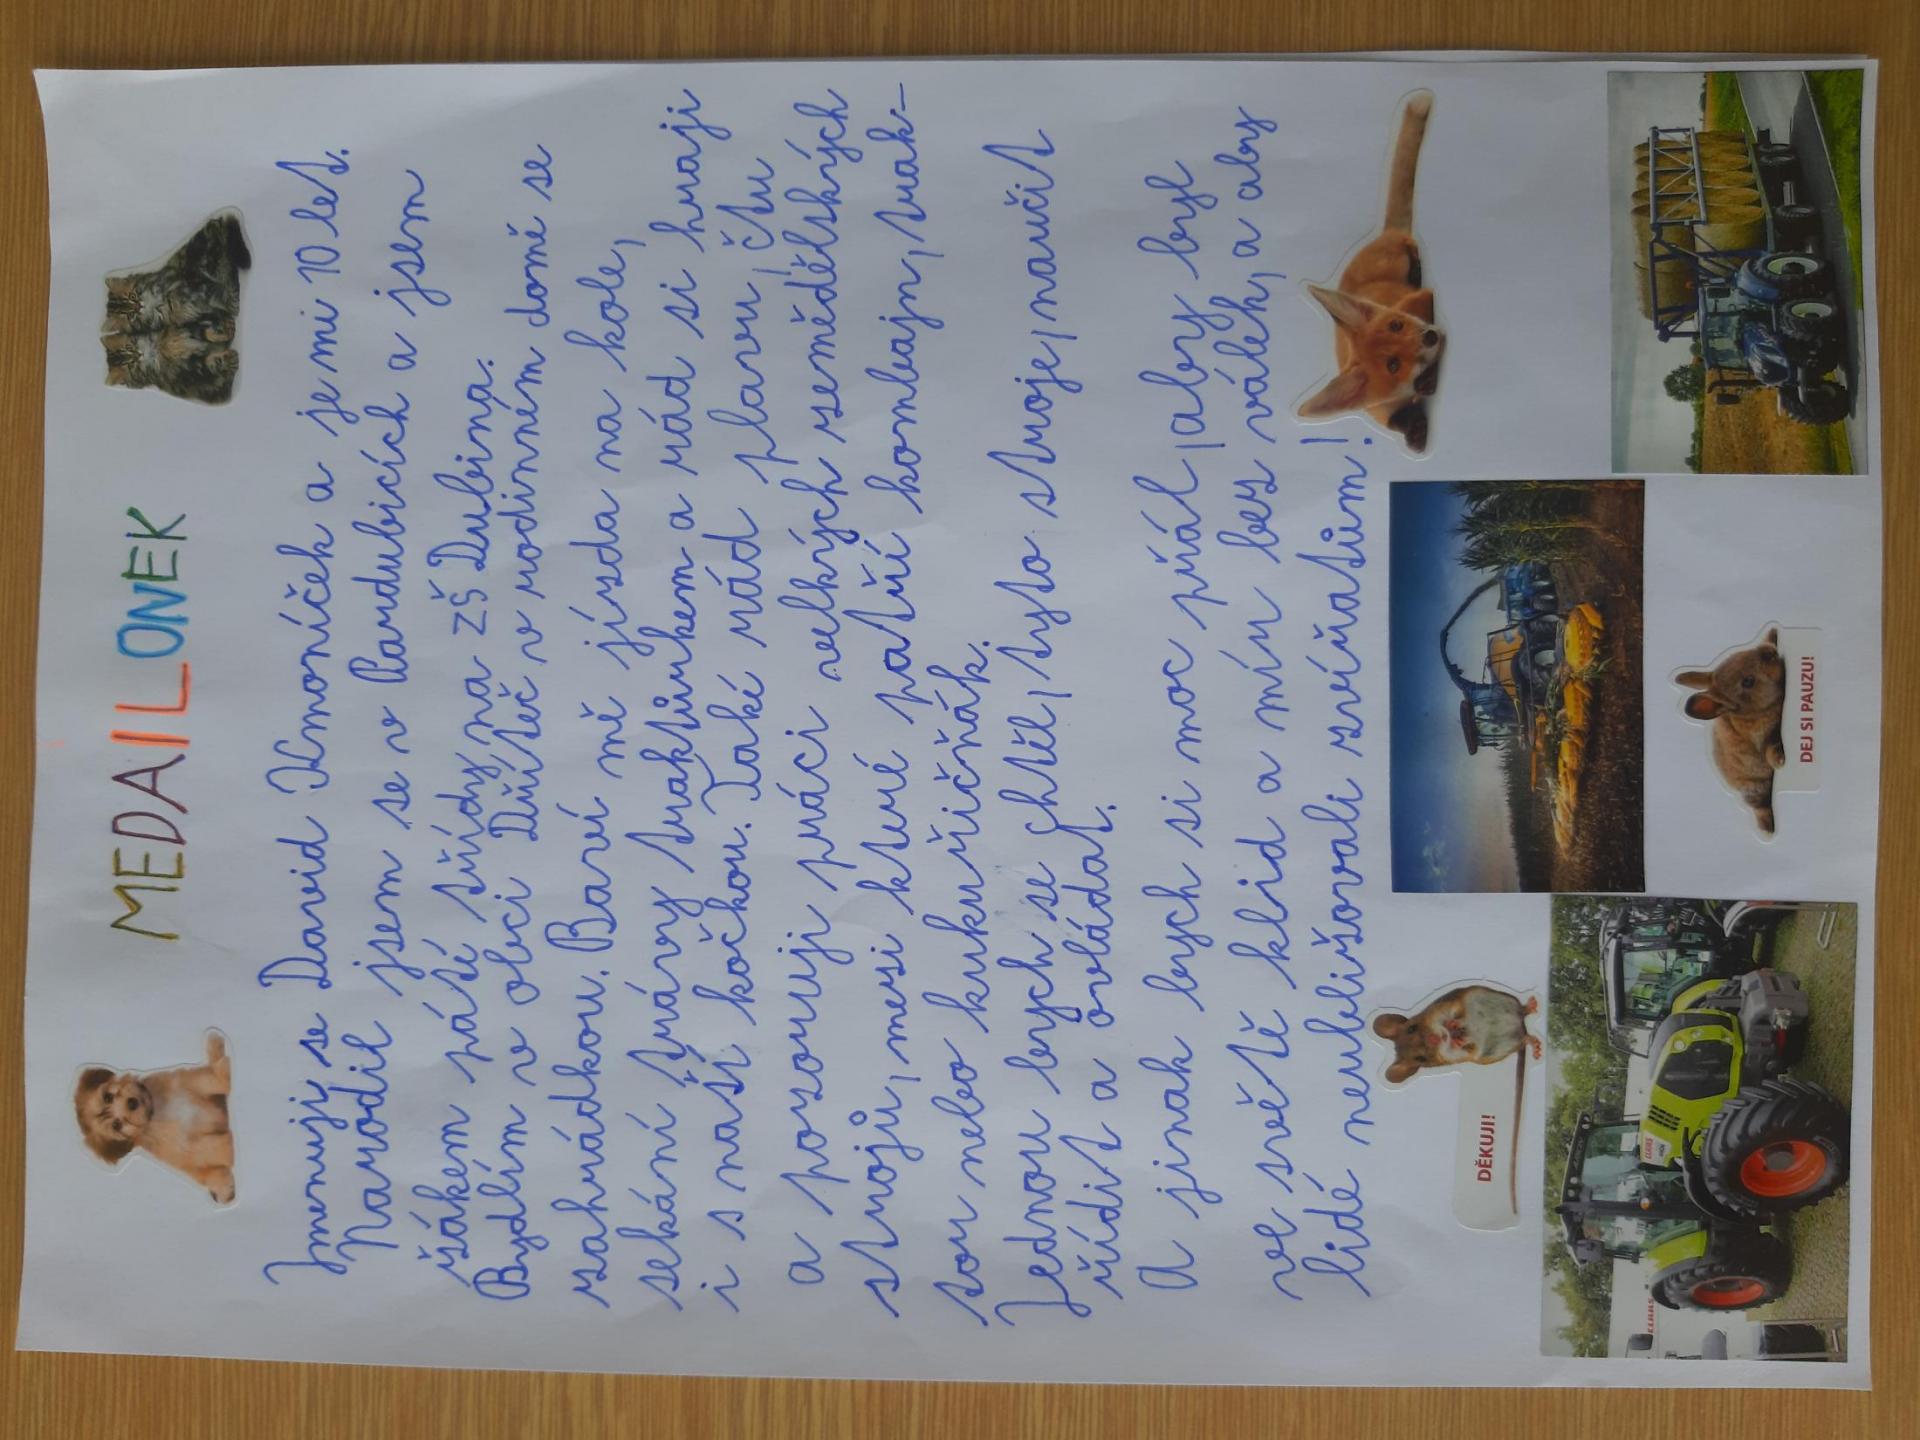 MEDAILONEK
Jmenuji se David Kmoníček a je mi 10 let.
Narodil jsem se v Pardubicích a jsem
žákem páté třídy na ZŠ Dubina.
Bydlím v obci Dříteč v rodinném domě se
zahrádkou. Baví mě jízda na kole,
sekání trávy traktůrkem a rád si hraji
i s naší kočkou. Také rád plavu, čtu
a pozoruji práci velkých zemědělských
strojů, mezi které patří kombajn, trak-
tor nebo kukuřičňák.
Jednou bych se chtěl, tyto stroje, naučit
řídit a ovládat.
A jinak bych si moc přál, aby byl
ve světě klid a mír bez válek, a aby
lidé neubližovali zvířatům!
DĚKUJI!
DEJ SI PAUZU!
CLAAS
CLAAS